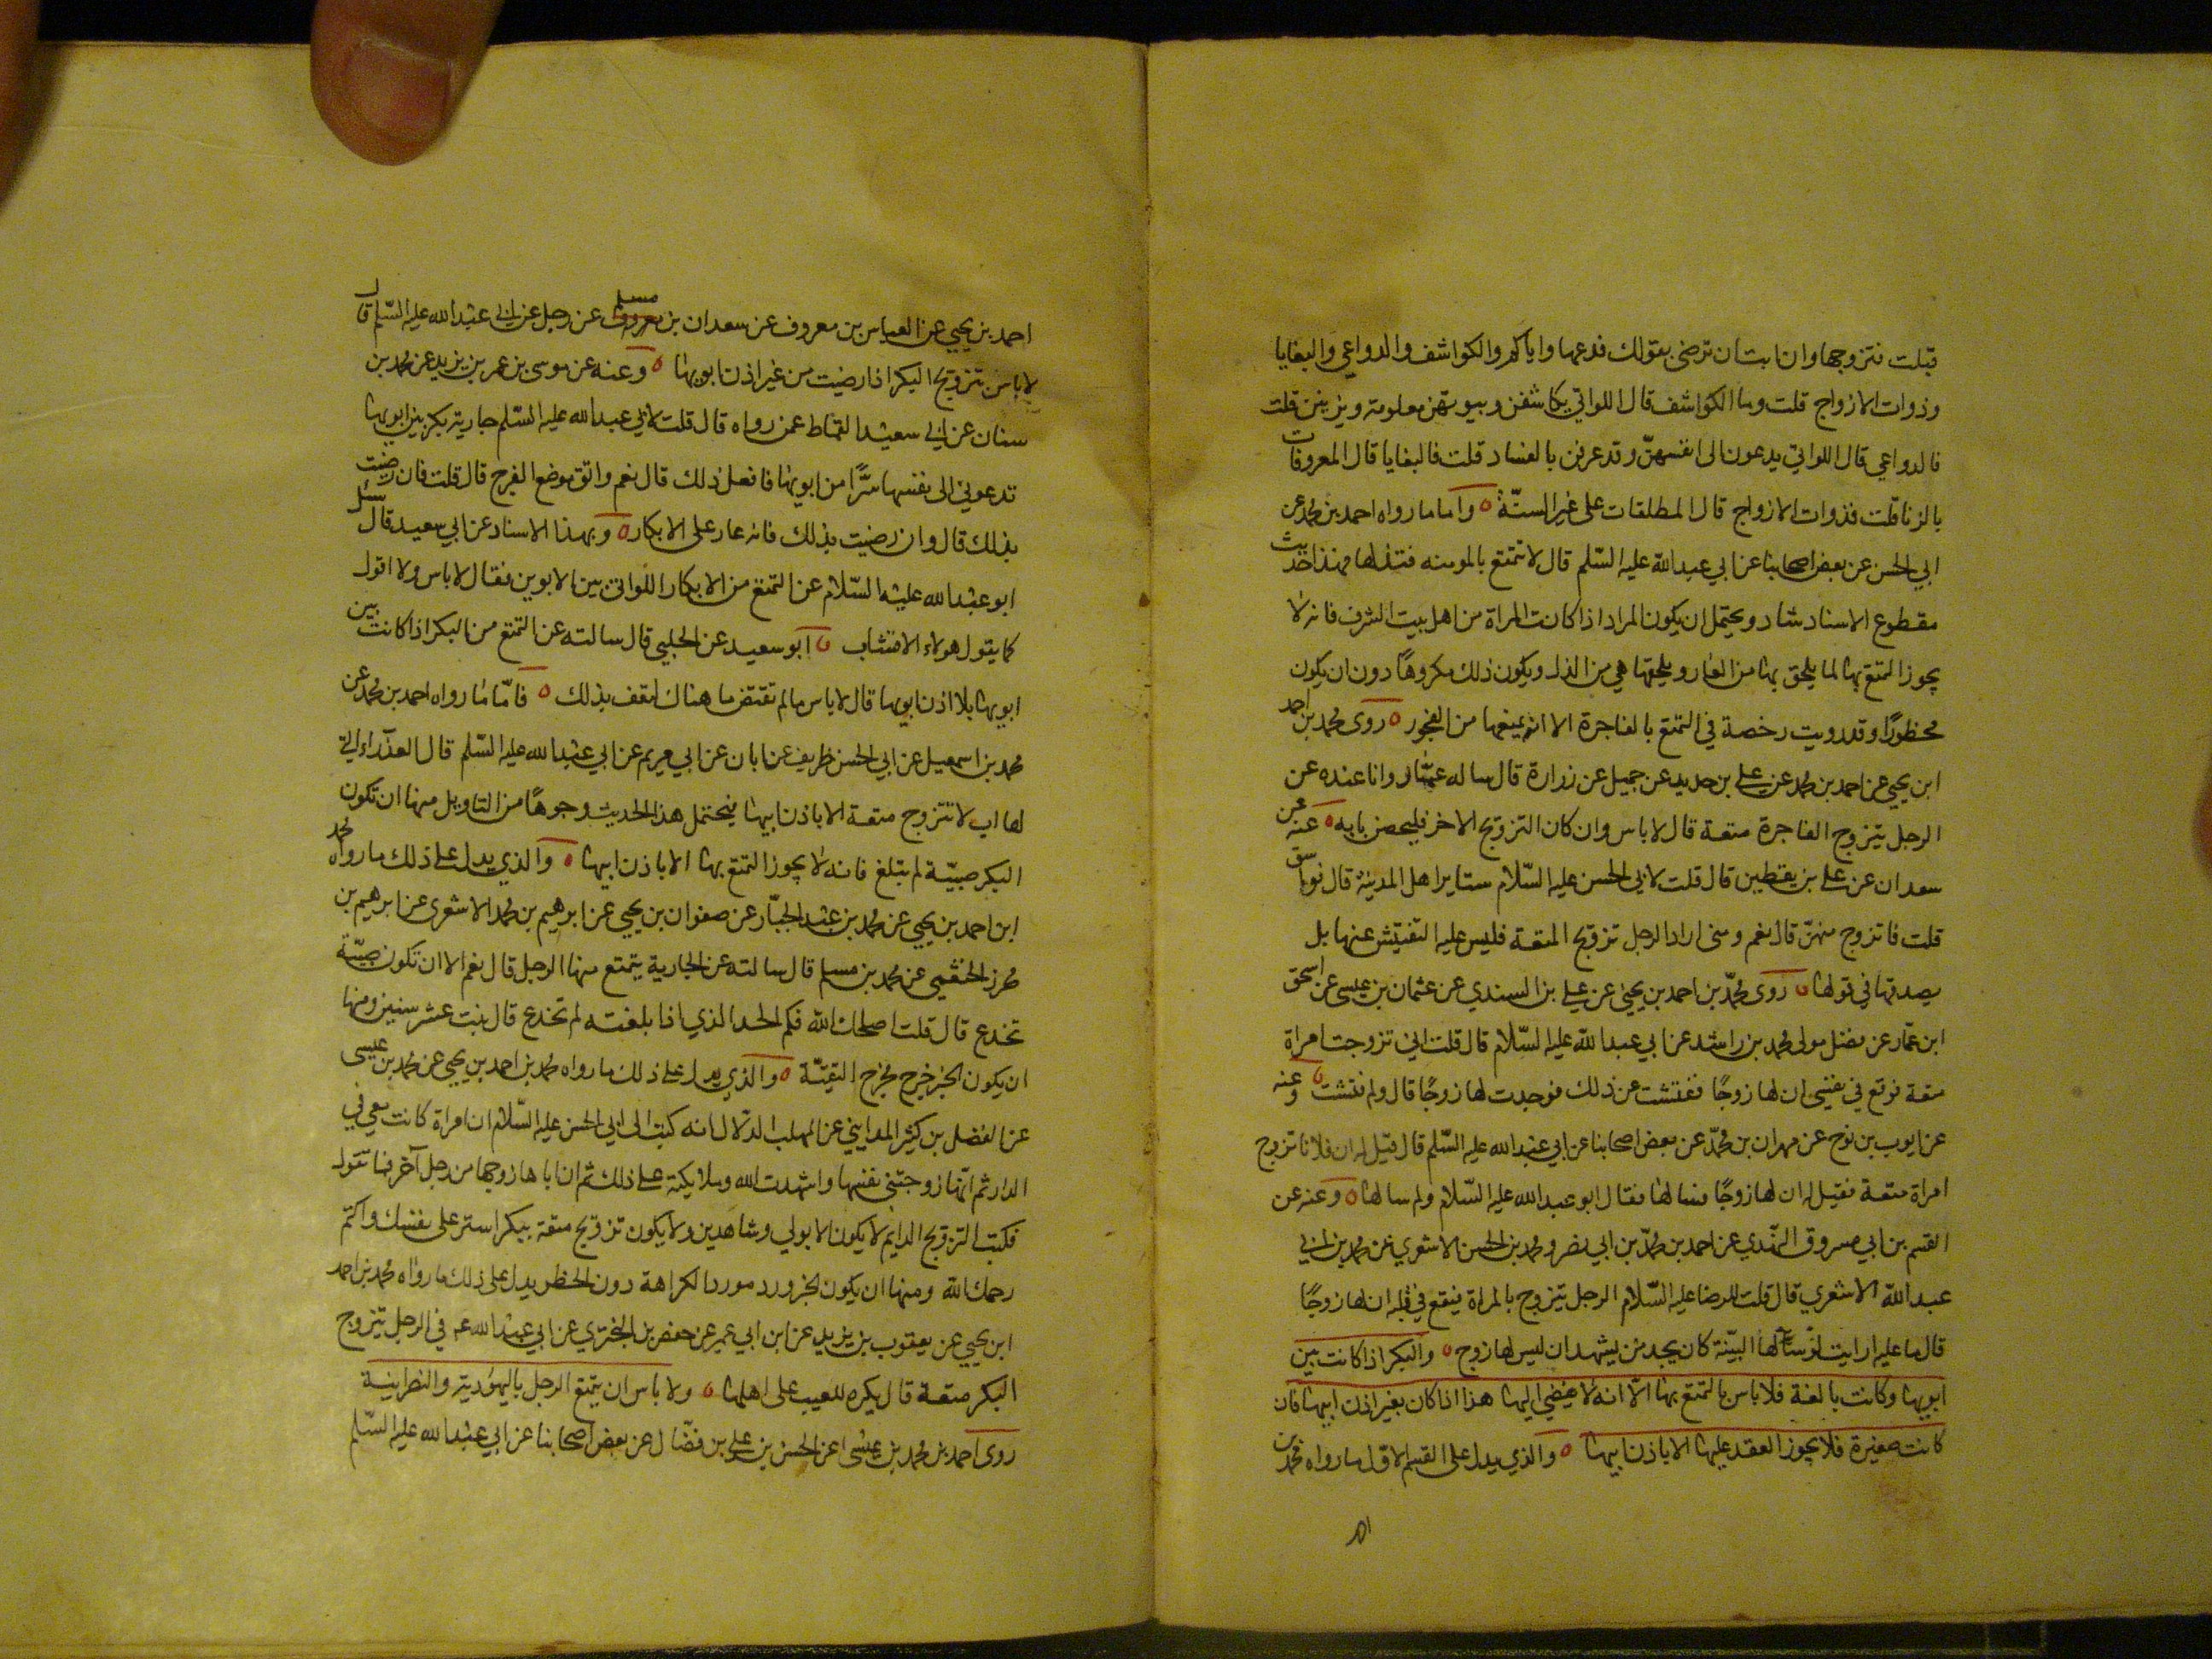 قبلت فتزوجها وان ابت ان ترضى بقولك فدعها واياكم والكواشف والدواعي والبغايا
وذوات الازواج قلت وما الكواشف قال اللواتي يكاشفن وبيوتهن معلومة ويزنين قلت
فالدواعي قال اللواتي يدعون الى انفسهنّ وقد عرفن بالفساد قلت فالبغايا قال المعروفات
بالزنا قلت فذوات الازواج قال المطلقات على غير السنّة واما ما رواه احمد بن محمد عن
ابي الحسن عن بعض اصحابنا عن ابي عبد الله عليه السّلم قال لا تتمتع بالمومنه فتذلها فهذا حديث
مقطوع الاسناد شاد ويحتمل ان يكون المراد اذا كانت المراة من اهل بيت الشرف فانه لا
يجوز التمتع بها لما يلحق بها من العار ويلحقها هي من الذل ويكون ذلك مكروهًا دون ان يكون
محظورًا وقد رويت رخصة في التمتع بالفاجرة الا انه يمنعها من الفجور روى محمد بن احمد
ابن يحيى عن احمد بن محمد عن علي بن حديد عن جميل عن زرارة قال ساله عمّار وانا عنده عن
الرجل يتزوج الفاجرة متعة قال لا باس وان كان التزويج الاخر فليحصن بابه عنه عن
سعدان عن علي بن يقطين قال قلت لابي الحسن عليه السّلام ستاير اهل المدينة قال فواسق
قلت فاتزوج منهنّ قال نعم ومتى اراد الرجل تزويج المتعة فليس عليه التفتيش عنها بل
يصدقها في قولها روى محمّد بن احمد بن يحيى عن علي بن السندي عن عثمان بن عيسى عن اسحق
ابن عمّار عن فضل مولى محمد بن راشد عن ابي عبد الله عليه السّلام قال قلت اني تزوجت امراة
متعة فوقع في نفسي ان لها زوجًا ففتشت عن ذلك فوجدت لها زوجًا قال ولم فتشت وعنه
عن ايوب بن نوح عن مهران بن محمّد عن بعض اصحابنا عن ابي عبد الله عليه السّلم قال قيل له ان فلانا تزوج
امراة متعة فقيل له ان لها زوجًا فسالها فقال ابو عبد الله عليه السّلام ولم سالها وعنه عن
القسم بن ابي مسروق النهدي عن احمد بن محمّد بن ابي نصر ومحمد بن الحسن الاشعري عن محمد بن ابي
عبد الله الاشعري قال قلت للرضا عليه السّلام الرجل يتزوج بالمراة فيقع في قلبه ان لها زوجًا
قال ما عليه ارايت لو سالها البيّنة كان يجد من يشهد ان ليس لها زوج والبكر اذا كانت بين
ابويها وكانت بالغة فلا باس بالتمتع بها الّا انه لا يفضي اليها هذا اذا كان بغير اذن ابيها فان
كانت صغيرة فلا يجوز العقد عليها الا باذن ابيها والذي يدل على القسم الاوّل ما رواه محمد بن
احمد بن يحيى عن العباس بن معروف عن سعدان بن مسلم عن رجل عن ابي عبد الله عليه السّلم قال
لا باس بتزويج البكر اذا رضيت من غير اذن ابويها وعنه عن موسى بن عمر بن يزيد عن محمد بن
سنان عن ابي سعيد القماط عمن رواه قال قلت لابي عبد الله عليه السّلم جارية بكر بين ابويها
تدعوني الى نفسها سرًّا من ابويها فافعل ذلك قال نعم واتق موضع الفرج قال قلت فان رضيت
بذلك قال وان رضيت بذلك فانه عار على الابكار وبهذا الاسناد عن ابي سعيد قال سئل
ابو عبد الله عليه السّلام عن التمتع من الابكار اللواتي بين الابوين فقال لا باس ولا اقول
كما يقول هولاء الاقشاب ابو سعيد عن الحلبي قال سالته عن التمتع من البكر اذا كانت بين
ابويها بلا اذن ابويها قال لا باس ما لم تفتض ما هناك لتعف بذلك فامّا ما رواه احمد بن محمد عن
محمد بن اسمعيل عن ابي الحسن ظريف عن ابان عن ابي مريم عن ابي عبد الله عليه السّلم قال العذراء التي
لها اب لا تتزوج متعة الا باذن ابيها فيحتمل هذا الحديث وجوهًا من التاويل منها ان تكون
البكر صبيّة لم تبلغ فانه لا يجوز التمتع بها الا باذن ابيها والذي يدل على ذلك ما رواه محمد
ابن احمد بن يحيى عن محمد بن عبد الجبّار عن صفوان بن يحيى عن ابرهيم بن محمد الاشعري عن ابرهيم بن
محرز الخثعمي عن محمد بن مسلم قال سالته عن الجارية يتمتع منها الرجل قال نعم الا ان تكون صبيّة
تخدع قال قلت اصلحك الله فكم الحد الذي اذا بلغته لم تخدع قال بنت عشر سنين ومنها
ان يكون الخبر خرج مخرج التقيّة والذي يدل على ذلك ما رواه محمد بن احمد بن يحيى عن محمد بن عيسى
عن الفضل بن كثير المدايني عن المهلب الدلال انه كتب الى ابي الحسن عليه السّلام ان امراة كانت معي في
الدار ثم انّها زوجتني نفسها واشهدت الله وملايكته على ذلك ثم ان اباها زوجها من رجل آخر فما تقول
فكتب التزويج الدايم لا يكون الا بولي وشاهدين ولا يكون تزويج متعة ببكر استر على نفسك واكتم
رحمك الله ومنها ان يكون الخبر ورد مورد الكراهة دون الحظر يدل على ذلك ما رواه محمد بن احمد
ابن يحيى عن يعقوب بن يزيد عن ابن ابي عمير عن حفص بن البختري عن ابي عبد الله عم في الرجل يتزوج
البكر متعة قال يكره للعيب على اهلها ولا باس ان يتمتع الرجل باليهودية والنصرانية
روى احمد بن محمد بن عيسى عن الحسن بن علي بن فضّال عن بعض اصحابنا عن ابي عبد الله عليه السّلم